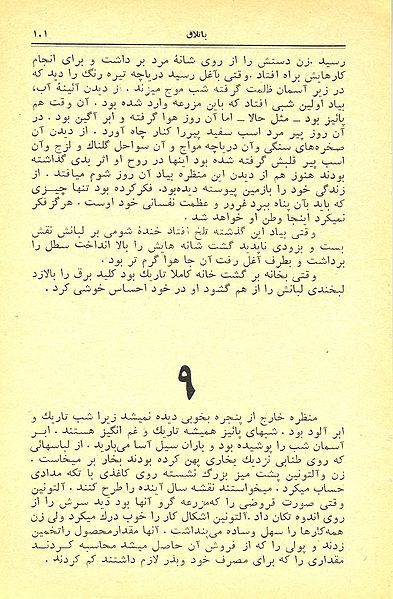 ۱۰۱ باتلاق
رسید. زن دستش را از روی شانهٔ مرد بر داشت و برای انجام
کارهایش براه افتاد. وقتی بآغل رسید دریاچه تیره رنگ را دید که
در زیر آسمان ظلمت گرفته شب موج میزند. از دیدن آئینهٔ آب،
بیاد اولین شبی افتاد که باین مزرعه وارد شده بود. آن وقت هم
پائیز بود ـ مثل حالا ـ اما آن روز هوا گرفته و ابر آگین بود. در
آن روز پیر مرد اسب سفید پیررا کنار چاه آورد. از دیدن آن
صخره‌های سنگی وآن دریاچه مواج و آن سواحل گلناك و لزج وآن
اسب پیر قلبش گرفته شده بود اینها در روح او اثر بدی گذاشته
بودند هنوز هم از دیدن این منظره بیاد آن روز شوم میافتد. از
زندگی خود را بازمین پیوسته دیده‌بود. فکرکرده بود تنها چیـزی
که باید بآن پناه ببرد غرور و عظمت نفسانی خود اوست. هرگزفکر
نمیکرد اینجا وطن او خواهد شد.
وقتی بیاد این گذشته تلخ افتاد خندهٔ شومی بر لبانش نقش
بست و بزودی ناپدید گشت شانه هایش را بالا انداخت سطل را
برداشت و بطرف آغل رفت آن جا هوا گرم تر بود.
وقتی بخانه بر گشت خانه کاملا تاریك بود کلید برق را بالازد
لبخندی لبانش را از هم گشود او در خود احساس خوشی کرد.
۹
منظره خارج از پنجره بخوبی دیده نمیشد زیرا شب تاریك و
ابر آلود بود. شبهای پائیز همیشه تاریك و غم انگیز هستند. ابـر
آسمان شب را پوشیده بود و باران سیل آسا می‌بارید. از لباسهائی
که روی طنابی نزدیك بخاری پهن کرده بودند بخار بر میخاست.
زن وآلتونین پشت میز بزرگ نشسته روی کاغذی با تکه مدادی
حساب میکرد. میخواستند نقشه سال آینده را طرح کنند. آلتونین
وقتی صورت قروضی را که‌مزرعه گرو آنها بود دید سرش را از
روی اندوه تکان داد. آلتونین اشکال کار را خوب درك میکرد ولی زن
همه‌کارها را سهل وساده می‌پنداشت. آنها مقدارمحصول راتخمین
زدند و پولی را که از فروش آن حاصل میشد محاسبه کردنـد
مقداری را که برای مصرف خود وبذر لازم داشتند کم کردند.